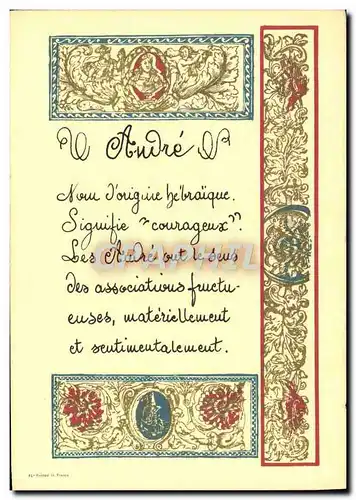 André
Nom d'origine hébraïque.
Signifie "courageux".
Les André ont le sens
des associations fructu-
euses, matériellement
et sentimentalement.